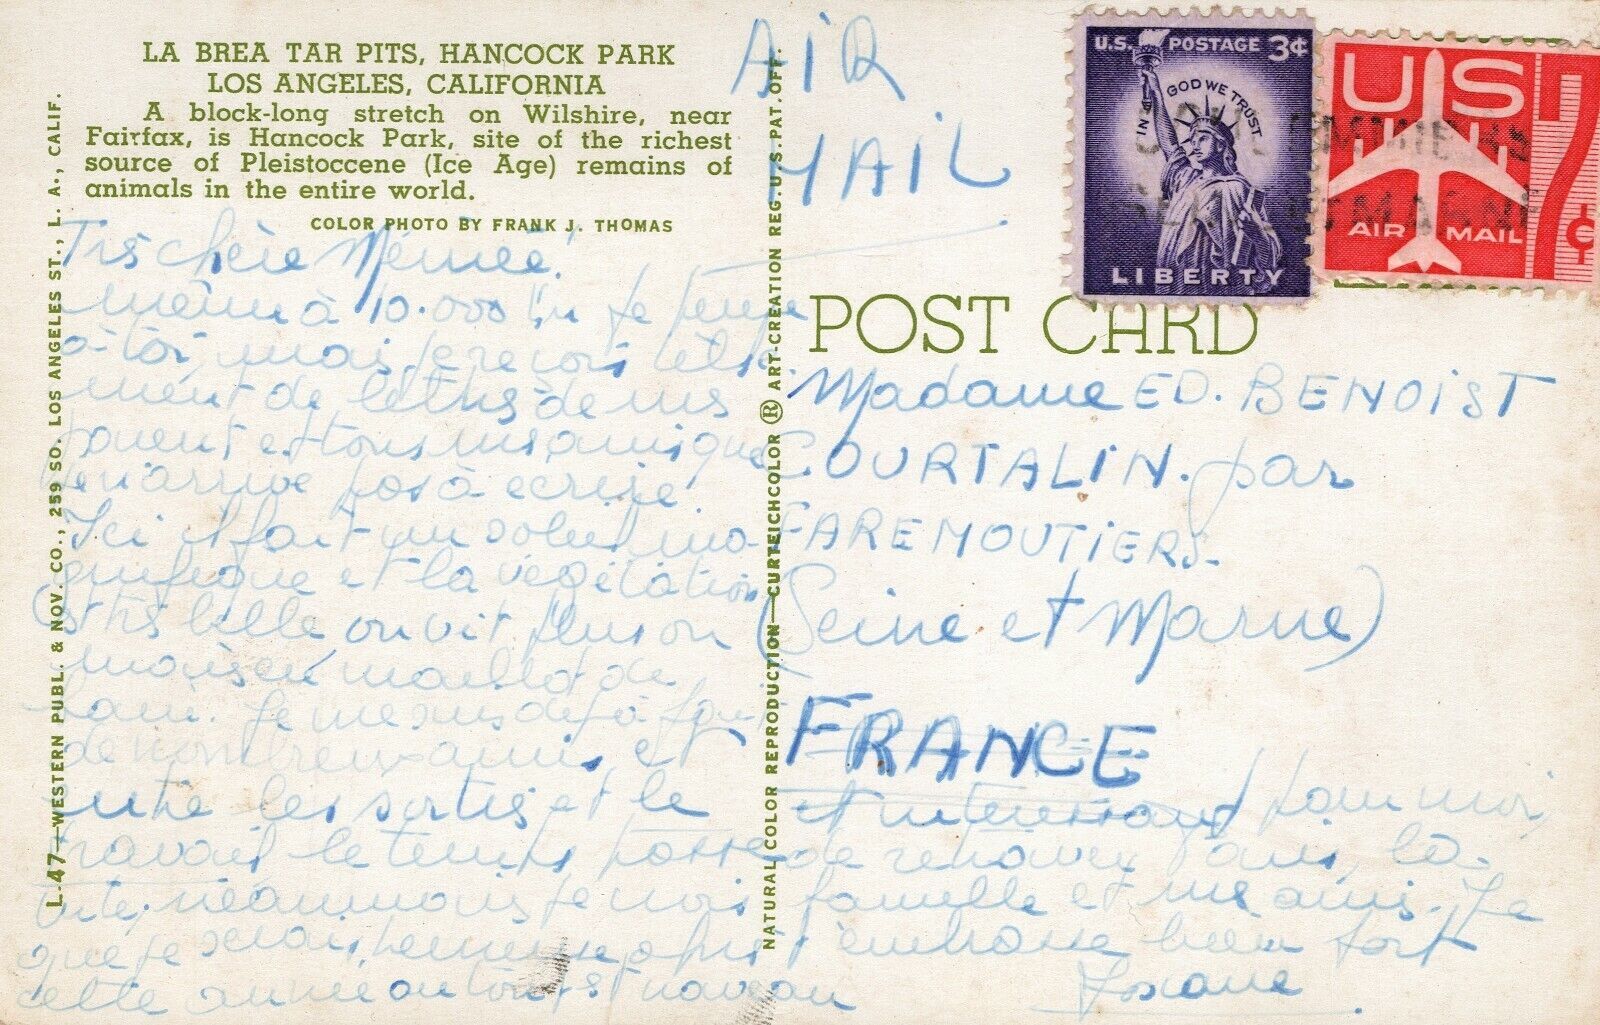 LA BREA TAR PITS, HANCOCK PARK
LOS ANGELES, CALIFORNIA
A block-long stretch on Wilshire, near
Fairfax, is Hancock Park, site of the richest
source of Pleistoccene (Ice Age) remains of
animals in the entire world.
COLOR PHOTO BY FRANK J. THOMAS
L-47—WESTERN PUBL. & NOV. CO., 259 SO. LOS ANGELES ST., L. A., CALIF.
Très chère Mémée!
même à 10.000 km je pense
à toi, mais je reçois
ment de lettres de mes
parent et tous mes amis que
j'en arrive pas à écrire
Ici il fait un soleil ma-
gnifique et la végétation
est très belle on vit plus on
maison maillot de
bain. Je me suis déjà fait
de nombreux amis et
entre les sorties et le
travail le temps passe
vite. néanmoins je
que je serais
cette année ou
NATURAL COLOR REPRODUCTION—CURTEICHCOLOR ® ART-CREATION REG. U.S. PAT. OFF.
AIR
MAIL
U.S. POSTAGE 3¢
IN GOD WE TRUST
LIBERTY
US
AIR MAIL
7¢
POST CARD
Madame ED. BENOIST
COURTALIN. par
FAREMOUTIERS.
(Seine et Marne)
FRANCE
et intéressant pour moi
de retrouver Paris, la
famille et mes amis. Je
t'embrasse bien fort